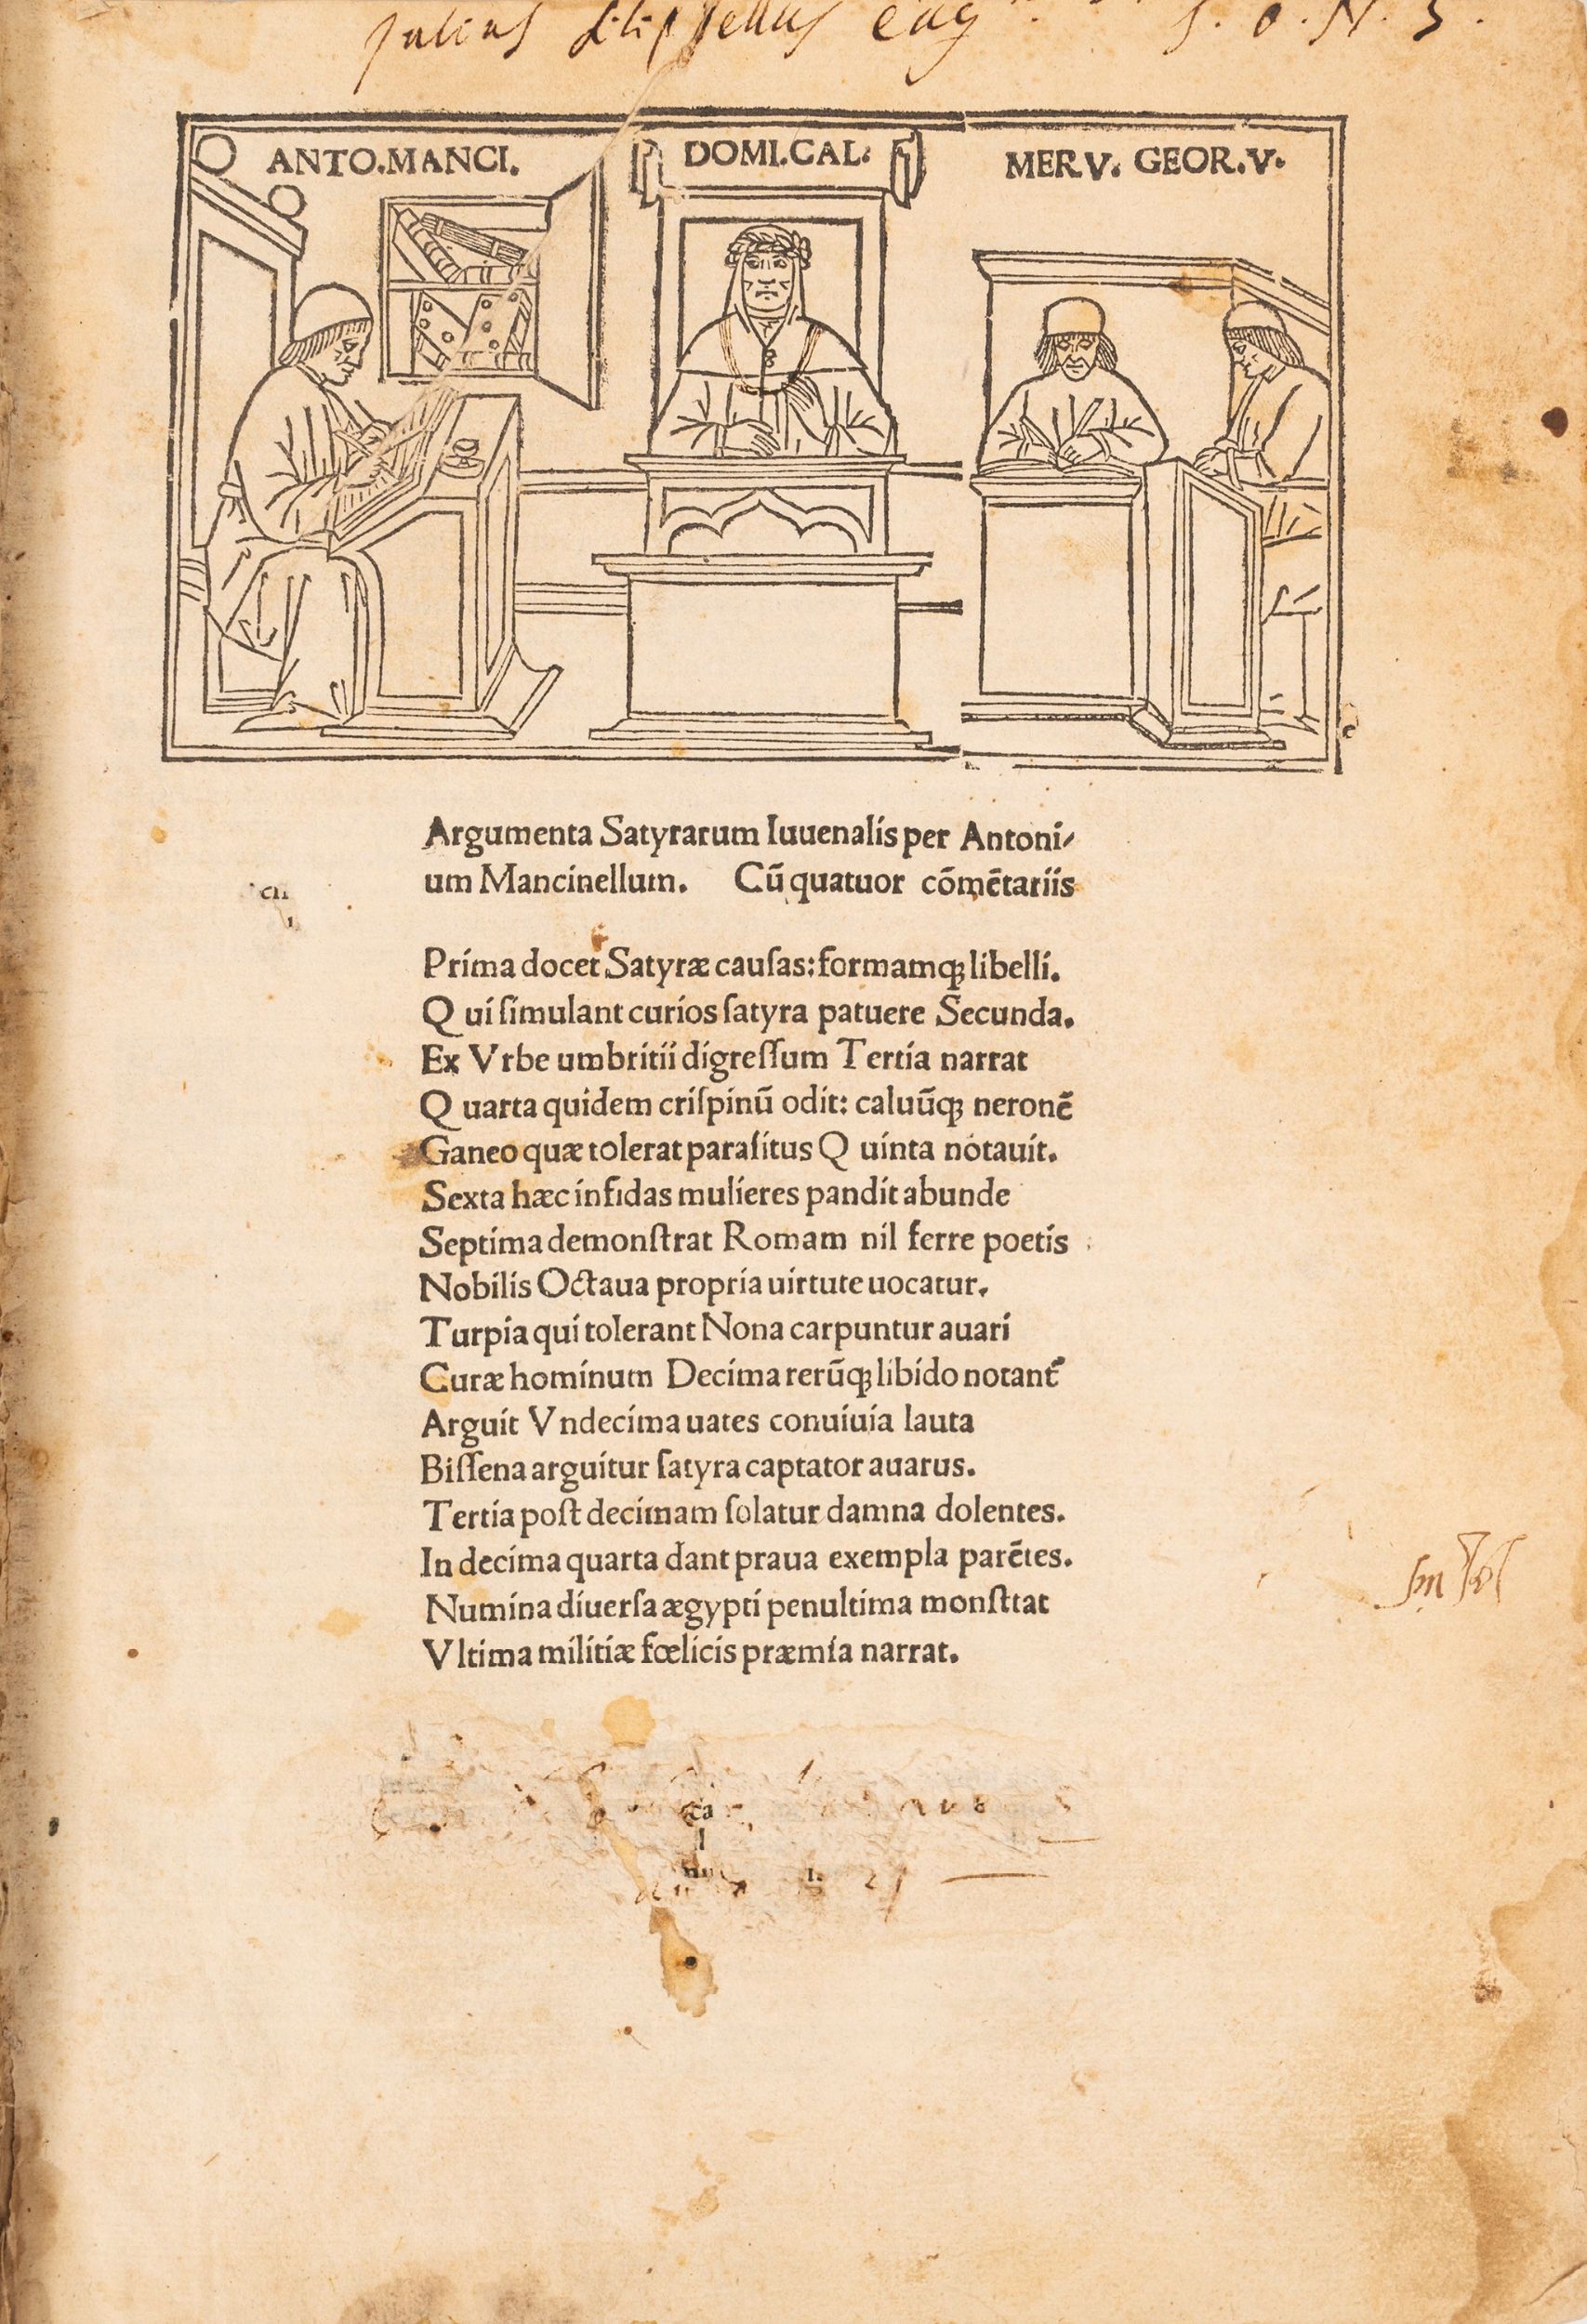 Julius
S. O. N. 3.
ANTO.MANCI. DOMI.CAL. MER.V. GEOR.V.
Argumenta Satyrarum Iuuenalis per Antoni⸗
um Mancinellum. Cū quatuor cōmētariis
Prima docet Satyræ cauſas: formamqꝫ libelli.
Qui ſimulant curios ſatyra patuere Secunda.
Ex Vrbe umbritii digreſſum Tertia narrat
Quarta quidem criſpinū odit: caluūqꝫ neronē
Ganeo quæ tolerat paraſitus Quinta notauit.
Sexta hæc infidas mulieres pandit abunde
Septima demonſtrat Romam nil ferre poetis
Nobilis Octaua propria uirtute uocatur.
Turpia qui tolerant Nona carpuntur auari
Curæ hominum Decima rerūqꝫ libido notant᷑
Arguit Vndecima uates conuiuia lauta
Biſſena arguitur ſatyra captator auarus.
Tertia poſt decimam ſolatur damna dolentes.
In decima quarta dant praua exempla parētes.
Numina diuerſa ægypti penultima monſttat
Vltima militiæ fœlicis præmia narrat.